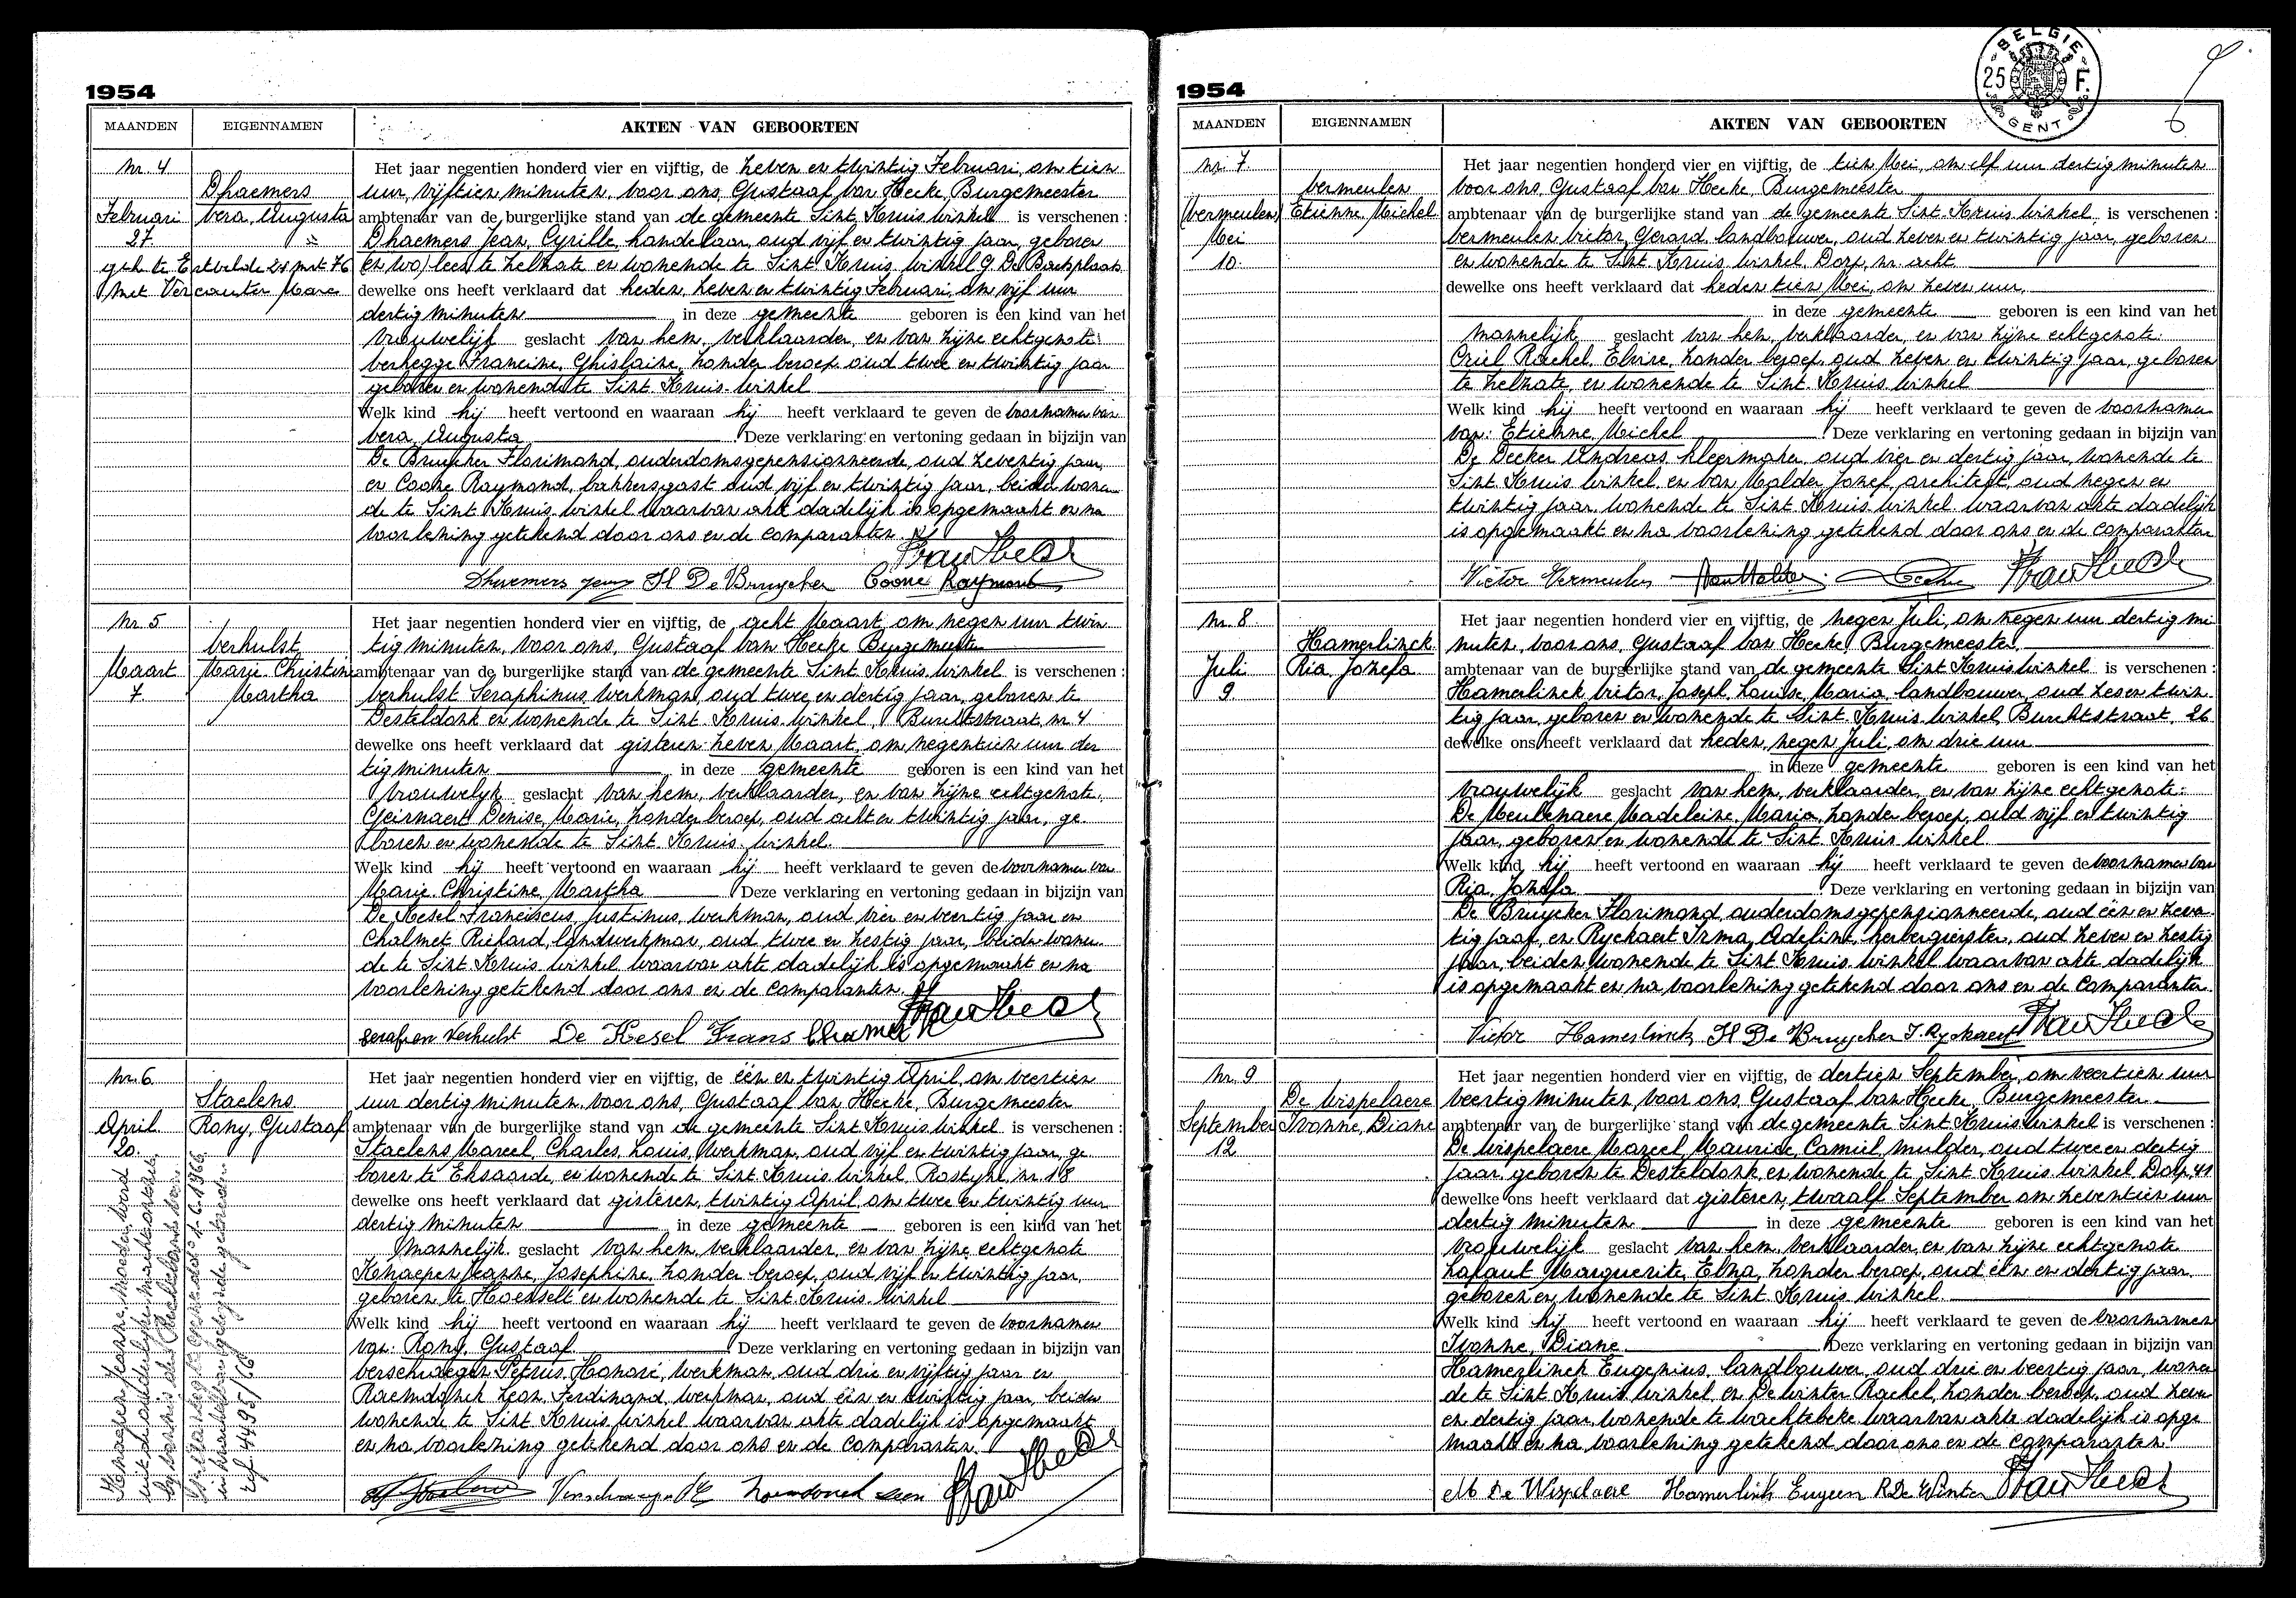 1954
MAANDEN EIGENNAMEN AKTEN VAN GEBOORTEN
Nr. 4
Dhaemers
Vera, Augusta
Februari
27.
geh. te Ertvelde 24 mrt 76
met Vercauter Marc
Het jaar negentien honderd vier en vijftig, de zeven en twintig Februari, om tien
uur, vijftien minuten, voor ons, Gustaaf Van Hecke, Burgemeester
ambtenaar van de burgerlijke stand van de gemeente Sint Kruis Winkel is verschenen :
Dhaemers Jean, Cyrille, handelaar, oud vijf en twintig jaar, geboren
te Zelzate en wonende te Sint Kruis Winkel
dewelke ons heeft verklaard dat heden, zeven en twintig Februari, om vijf uur
dertig minuten in deze gemeente geboren is een kind van het
vrouwelijk geslacht van hem, verklaarder, en van zijne echtgenote:
Verhegge Francine, Ghislaine, zonder beroep oud twee en twintig jaar
geboren en wonende te Sint Kruis Winkel
Welk kind hij heeft vertoond en waaraan hij heeft verklaard te geven de voornamen van
Vera, Augusta Deze verklaring en vertoning gedaan in bijzijn van
De Bruycker Florimond, ouderdomsgepensionneerde, oud zeventig jaar,
en Coone Raymond, bakkersgast oud vijf en twintig jaar, beiden wonen
de te Sint Kruis Winkel waarvan akte dadelijk is opgemaakt en na
voorlezing getekend door ons en de comparanten.
Dhaemers Jean Fl De Bruycker Coone Raymond
Nr. 5
Verhulst
Marie Christine
Martha
Maart
7.
Het jaar negentien honderd vier en vijftig, de acht Maart, om negen uur twin
tig minuten, voor ons, Gustaaf Van Hecke Burgemeester
ambtenaar van de burgerlijke stand van de gemeente Sint Kruis Winkel is verschenen :
Verhulst Seraphinus, werkman, oud twee en dertig jaar, geboren te
Desteldonk en wonende te Sint Kruis Winkel, Burchtstraat, nr. 4
dewelke ons heeft verklaard dat gisteren zeven Maart, om negentien uur der
tig minuten in deze gemeente geboren is een kind van het
vrouwelijk geslacht van hem, verklaarder, en van zijne echtgenote,
Geirnaert Denise, Marie, zonder beroep, oud acht en twintig jaar, ge
boren en wonende te Sint Kruis Winkel.
Welk kind hij heeft vertoond en waaraan hij heeft verklaard te geven de voornamen van
Marie Christine, Martha Deze verklaring en vertoning gedaan in bijzijn van
De Kesel Franciscus, Justinus, werkman, oud vier en veertig jaar en
Chalmet Richard, landwerkman, oud twee en zestig jaar, beide wonen
de te Sint Kruis Winkel waarvan akte dadelijk is opgemaakt en na
voorlezing getekend door ons en de comparanten.
Serafien Verhulst De Kesel Frans
Nr. 6
Staelens
Rony, Gustaaf
April
20.
Kenaepen Jeanne, moeder, werd
ref. 4495/66
Het jaar negentien honderd vier en vijftig, de één en twintig April, om veertien
uur dertig minuten, voor ons, Gustaaf Van Hecke, Burgemeester
ambtenaar van de burgerlijke stand van de gemeente Sint Kruis Winkel is verschenen :
Staelens Marcel, Charles, Louis, werkman, oud vijf en twintig jaar, ge
boren te Eksaarde, en wonende te Sint Kruis Winkel, Rostyne, nr. 18
dewelke ons heeft verklaard dat gisteren, twintig April, om twee en twintig uur
dertig minuten in deze gemeente geboren is een kind van het
mannelijk geslacht van hem, verklaarder, en van zijne echtgenote
Kenaepen Jeanne, Josephine, zonder beroep, oud vijf en twintig jaar,
geboren te Hoesselt en wonende te Sint Kruis Winkel
Welk kind hij heeft vertoond en waaraan hij heeft verklaard te geven de voornamen
van: Rony, Gustaaf Deze verklaring en vertoning gedaan in bijzijn van
Verschaegen Petrus, Honoré, werkman, oud drie en vijftig jaar en
Raemdonck Leon, Ferdinand, werkman, oud één en twintig jaar, beiden
wonende te Sint Kruis Winkel waarvan akte dadelijk is opgemaakt
en na voorlezing getekend door ons en de comparanten.
1954
BELGIE 25 F. GENT
MAANDEN EIGENNAMEN AKTEN VAN GEBOORTEN
Nr. 7
Vermeulen
(Vermeulen) Etienne, Michel
Mei
10.
Het jaar negentien honderd vier en vijftig, de tien Mei, om elf uur dertig minuten
voor ons, Gustaaf Van Hecke, Burgemeester
ambtenaar van de burgerlijke stand van de gemeente Sint Kruis Winkel is verschenen :
Vermeulen Victor, Gerard, landbouwer, oud zeven en twintig jaar, geboren
en wonende te Sint Kruis Winkel, Dorp, nr. acht
dewelke ons heeft verklaard dat heden tien Mei, om zeven uur,
in deze gemeente geboren is een kind van het
mannelijk geslacht van hem, verklaarder, en van zijne echtgenote:
Criel Rachel, Elvire, zonder beroep, oud zeven en twintig jaar, geboren
te Zelzate, en wonende te Sint Kruis Winkel
Welk kind hij heeft vertoond en waaraan hij heeft verklaard te geven de voornamen
van: Etienne, Michel Deze verklaring en vertoning gedaan in bijzijn van
De Decker Andreas, kleermaker, oud vier en dertig jaar, wonende te
Sint Kruis Winkel, en Van Malder Jozef, architekt, oud negen en
twintig jaar, wonende te Sint Kruis Winkel waarvan akte dadelijk
is opgemaakt en na voorlezing getekend door ons en de comparanten
Victor Vermeulen
Nr. 8
Hamerlinck
Ria, Jozefa
Juli
9.
Het jaar negentien honderd vier en vijftig, de negen Juli, om negen uur dertig mi
nuten, voor ons, Gustaaf Van Hecke, Burgemeester
ambtenaar van de burgerlijke stand van de gemeente Sint Kruis Winkel is verschenen :
Hamerlinck Victor, Joseph, Louise, Maria, landbouwer, oud zes en twin
tig jaar, geboren en wonende te Sint Kruis Winkel, Burchtstraat, 26
dewelke ons heeft verklaard dat heden, negen Juli, om drie uur
in deze gemeente geboren is een kind van het
vrouwelijk geslacht van hem, verklaarder, en van zijne echtgenote:
De Meulenaere Madeleine, Maria, zonder beroep, oud vijf en twintig
jaar, geboren en wonende te Sint Kruis Winkel
Welk kind hij heeft vertoond en waaraan hij heeft verklaard te geven de voornamen van
Ria, Jozefa Deze verklaring en vertoning gedaan in bijzijn van
De Bruycker Florimond, ouderdomsgepensionneerde, oud één en zeven
tig jaar, en Ryckaert Irma, Adeline, herbergierster, oud zeven en zestig
jaar, beiden wonende te Sint Kruis Winkel waarvan akte dadelijk
is opgemaakt en na voorlezing getekend door ons en de comparanten.
Victor Hamerlinck Fl De Bruycker I. Ryckaert
Nr. 9
De Wispelaere
Ivonne, Diane
September
12
Het jaar negentien honderd vier en vijftig, de dertien September, om veertien uur
veertig minuten, voor ons, Gustaaf Van Hecke, Burgemeester
ambtenaar van de burgerlijke stand van de gemeente Sint Kruis Winkel is verschenen :
De Wispelaere Marcel, Maurice, Camiel, mulder, oud twee en dertig
jaar, geboren te Desteldonk en wonende te Sint Kruis Winkel, Dorp, 41
dewelke ons heeft verklaard dat gisteren, twaalf September om zeventien uur
dertig minuten in deze gemeente geboren is een kind van het
vrouwelijk geslacht van hem, verklaarder, en van zijne echtgenote
Lafaut Marguerite, Elna, zonder beroep, oud één en dertig jaar
geboren en wonende te Sint Kruis Winkel.
Welk kind hij heeft vertoond en waaraan hij heeft verklaard te geven de voornamen
Ivonne, Diane Deze verklaring en vertoning gedaan in bijzijn van
Hamerlinck Eugenius, landbouwer, oud drie en veertig jaar, wonen
de te Sint Kruis Winkel, en De Winter Rachel, zonder beroep, oud zeven
en dertig jaar, wonende te Wachtebeke waarvan akte dadelijk is opge
maakt en na voorlezing getekend door ons en de comparanten.
M De Wispelaere Hamerlinck Eugeen R De Winter